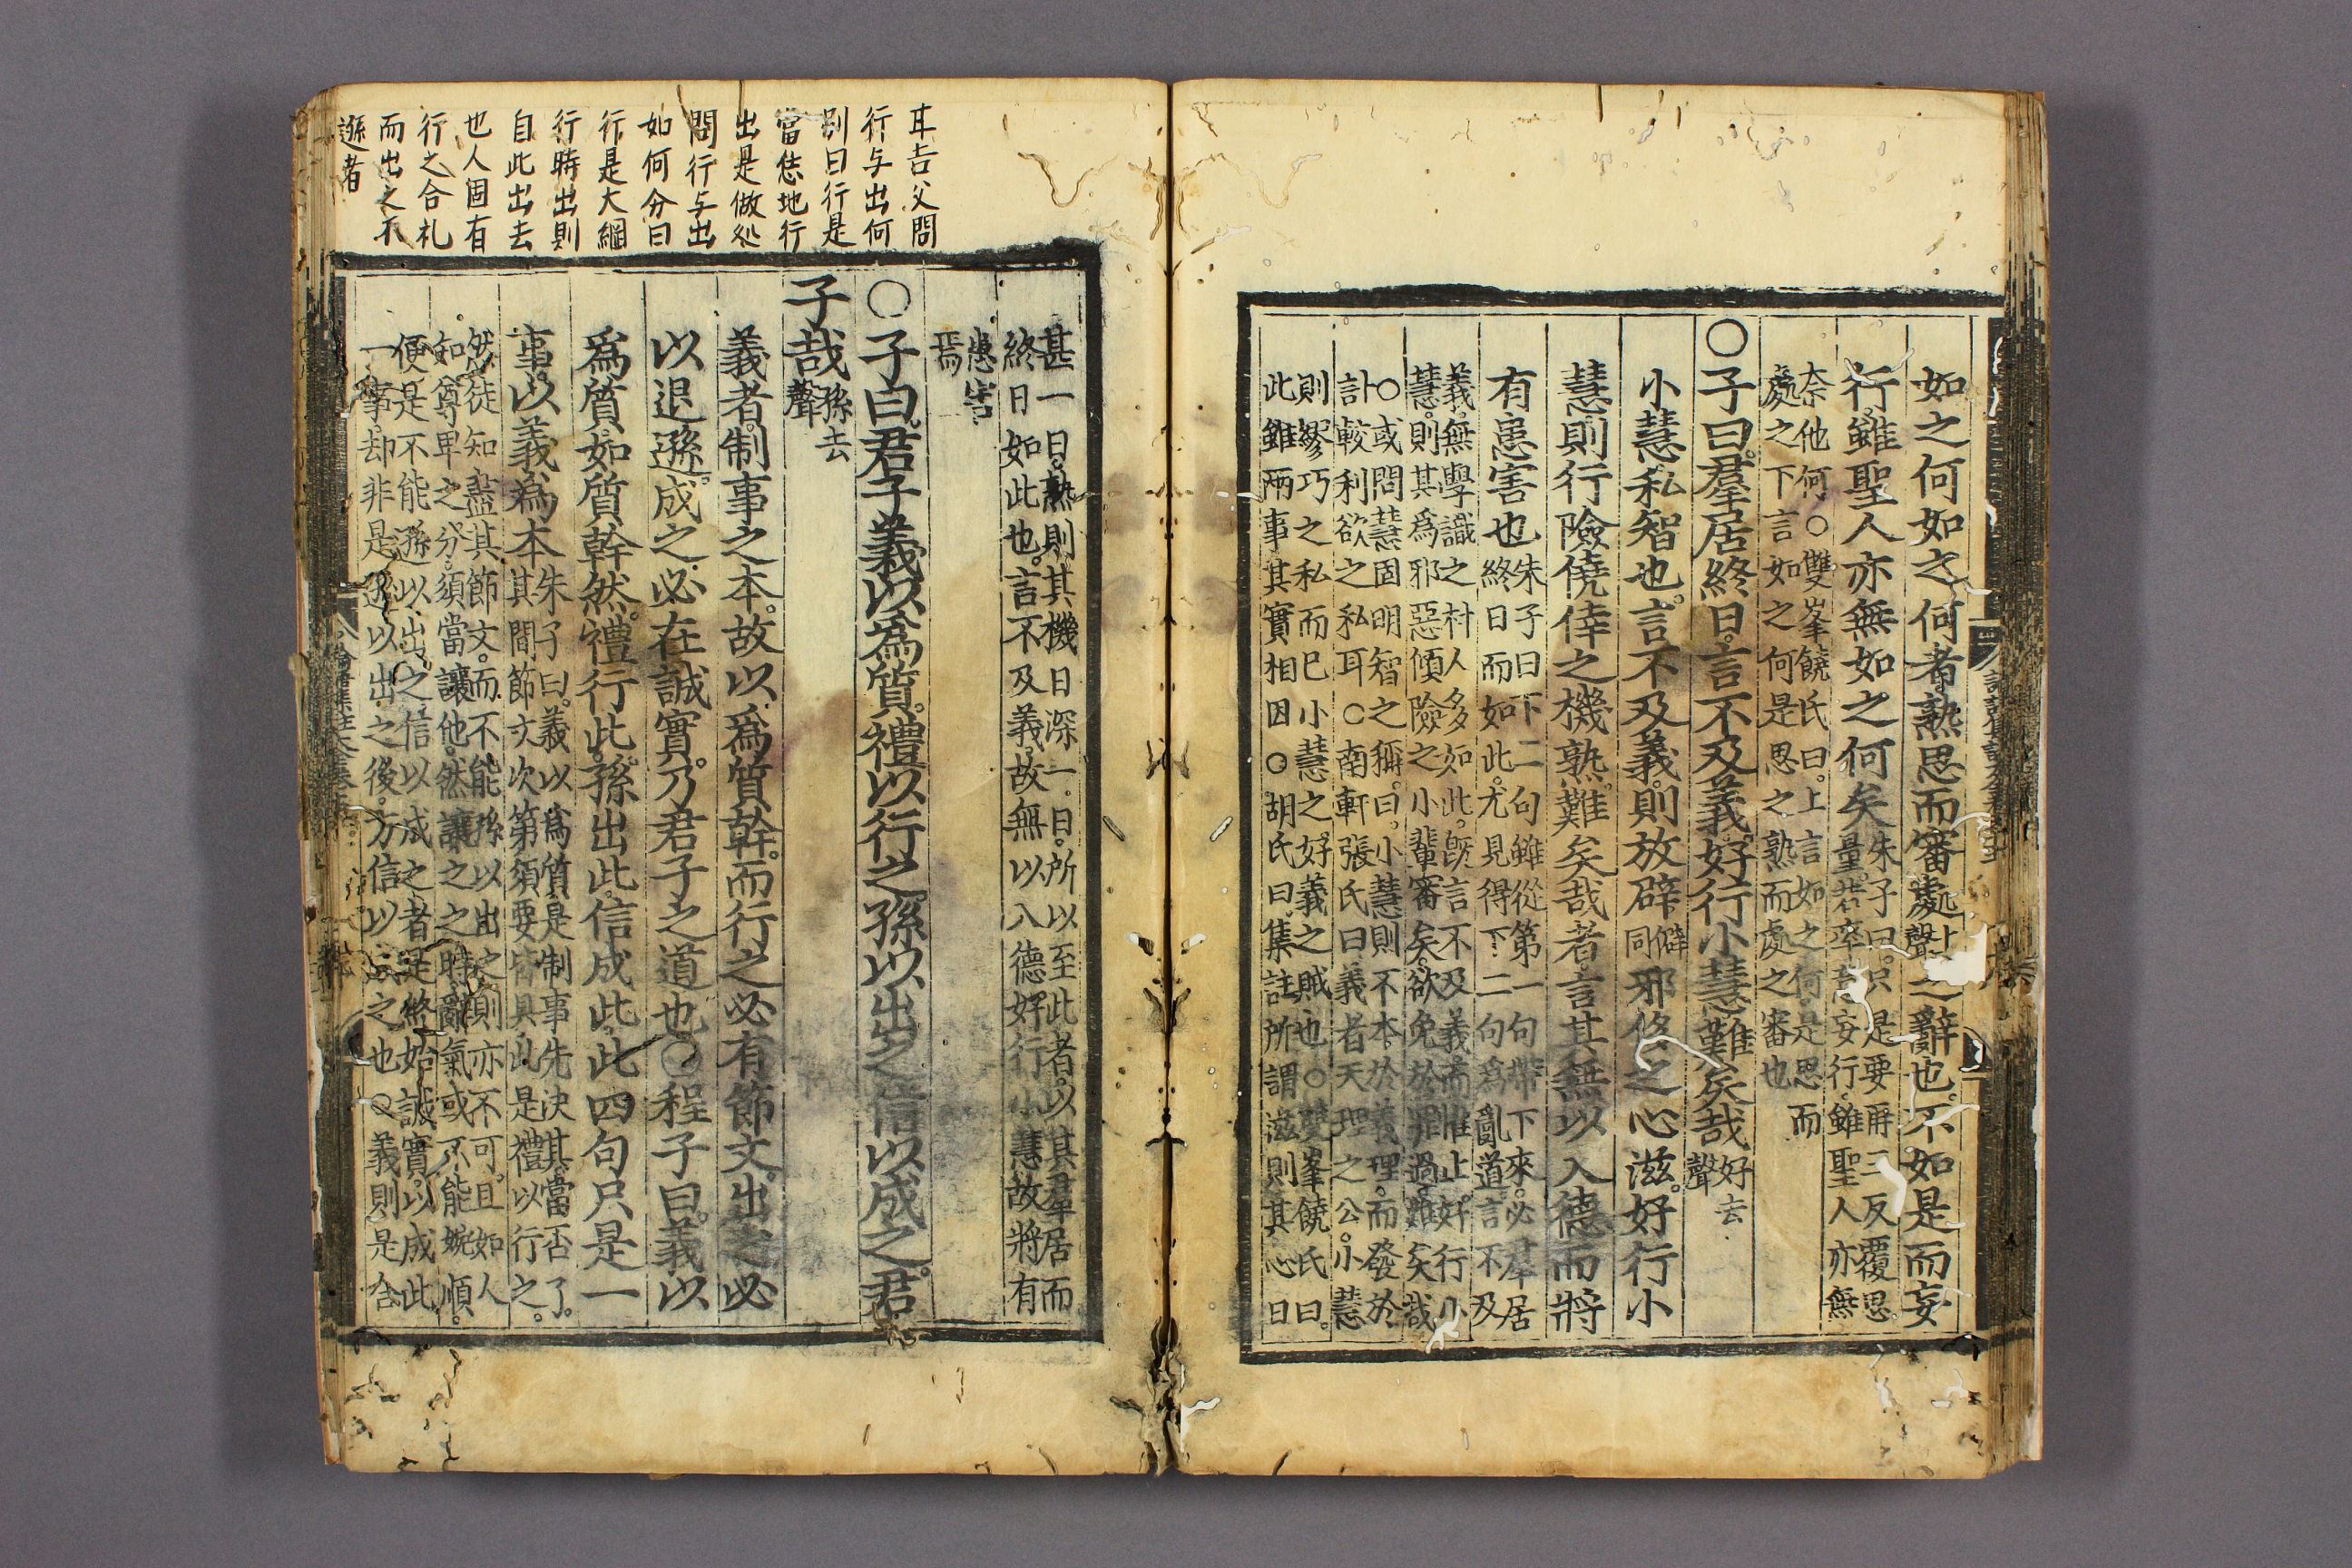 如之何如之何者熟思而審處上聲之辭也不如是而妄
行雖聖人亦無如之何矣朱子曰只是要再三反覆思
量若率意妄行雖聖人亦無
奈他何○雙峯饒氏曰上言如之何是思而
處之下言如之何是思之熟而處之審也
○子曰羣居終日言不及義好行小慧難矣哉好去
聲
小慧私智也言不及義則放辟僻
同邪侈之心滋好行小
慧則行險僥倖之機熟難矣哉者言其無以入德而將
有患害也朱子曰下二句雖從第一句帶下來必羣居
終日而如此尤見得下二句爲亂道言不及
義無學識之村人多如此旣言不及義而惟止好行小
慧則其爲邪惡傾險之小輩審矣欲免於罪過難矣哉
○或問慧固明智之稱曰小慧則不本於義理而發於
計較利欲之私耳○南軒張氏曰義者天理之公小慧
則繆巧之私而已小慧之好義之賊也○雙峯饒氏曰
此雖兩事其實相因○胡氏曰集註所謂滋則其心日
甚一日熟則其機日深一日所以至此者以其羣居而
終日如此也言不及義故無以入德好行小慧故將有
患害
焉
○子曰君子義以爲質禮以行之孫以出之信以成之君
子哉孫去
聲
義者制事之本故以爲質幹而行之必有節文出之必
以退遜成之必在誠實乃君子之道也○程子曰義以
爲質如質幹然禮行此孫出此信成此此四句只是一
事以義爲本朱子曰義以爲質是制事先決其當否了
其間節文次第須要皆具此是禮以行之
然徒知盡其節文而不能孫以出之則亦不可且如人
知尊卑之分須當讓他然讓之之時辭氣或不能婉順
便是不能孫以出之信以成之者是終始誠實以成此
一事却非是遜以出之後方信以成之也○義則是合
耳吉父問
行与出何
別曰行是
當恁地行
出是做処
問行与出
如何分曰
行是大綱
行時出則
自此出去
也人固有
行之合礼
而出之不
遜者